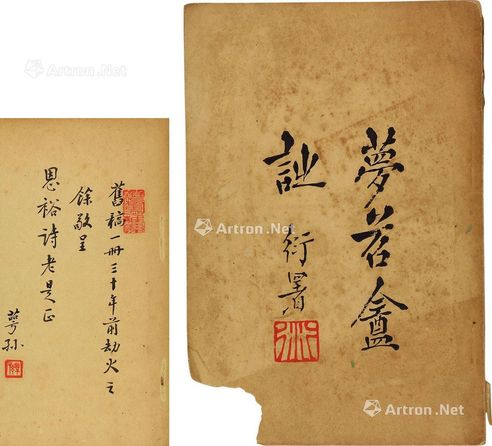 夢苕盦
詩
衍署
舊稿一冊三十年前劫火之
餘敬呈
恩裕詩老是正
萼孫
Artron.Net
Artron.Net
Artron.Net
Artron.Net